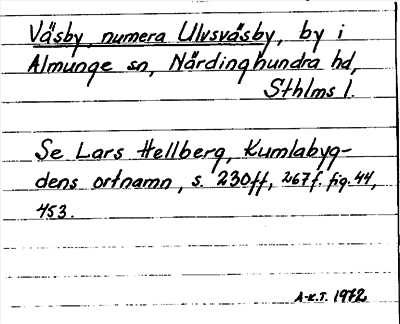 Väsby, numera Ulvsväsby, by i
Almunge sn, Närdinghundra hd,
Sthlms l.
Se Lars Hellberg, Kumlabyg-
dens ortnamn, s. 230ff, 267f. fig. 44,
453.
A-K.T. 1972